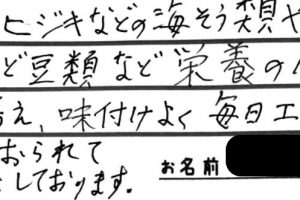 ヒジキなどの海そう類や
ど豆類など栄養の
え、味付けよく毎日工
おられて
しております。
お名前